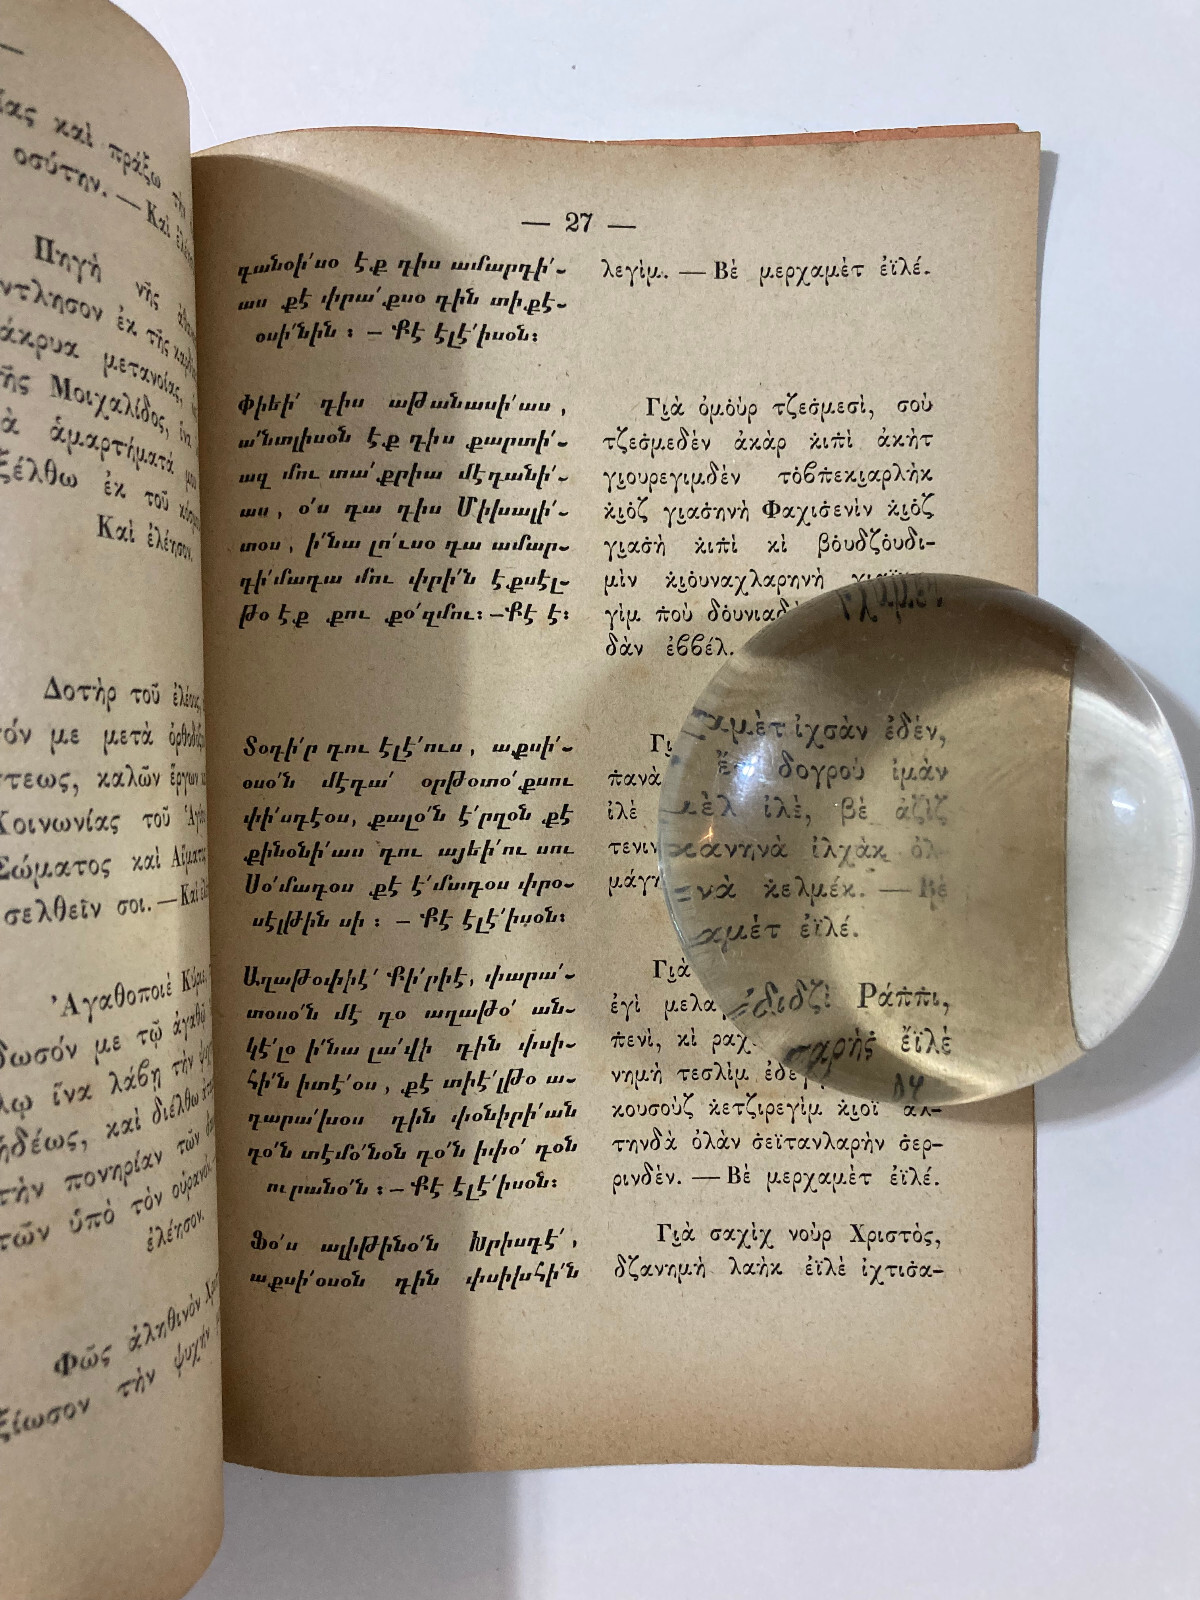 ίας καὶ πράξω τὴν
οσύτην. — Καὶ ἐλέησ
Πηγὴ νῆς ἀθαν
ντλησον ἐκ τῆς καρδί
άκρυα μετανοίας,
ῆς Μοιχαλίδος, ἵνα
ὰ ἁμαρτήματά μου
ξέλθω ἐκ τοῦ κόσμ
Καὶ ἐλέησον.
Δοτὴρ τοῦ ἐλέους,
όν με μετὰ ὀρθοδόξ
στεως, καλῶν ἔργων κ
Κοινωνίας τοῦ Ἁγί
Σώματος καὶ Αἵματος
σελθεῖν σοι. — Καὶ ἐλ
Ἀγαθοποιὲ Κύριε,
δωσόν με τῷ ἀγαθῷ
λῳ ἵνα λάβῃ τὴν ψυχ
ηδέως, καὶ διέλθω
τὴν πονηρίαν τῶν
τῶν ὑπὸ τὸν οὐρανόν.
ἐλέησον.
Φῶς ἀληθινὸν Χρι
ξίωσον τὴν ψυχήν
— 27 —
դանօի՛սօ է.ք դիս ամարդի՛-
աս քէ փրա՛քսօ դին տիքէ-
օսի՛նին։ – Քէ էլէ՛իսօն։
Փիեի՛ դիս աթանասի՛աս,
ա՛նտլիսօն է.ք դիս քարտի՛-
ազ մու տա՛քրիա մէդանի՛-
աս, օ՛ս դա դիս Միխալի՛-
տօս, ի՛նա լո՛ւսօ դա ամար-
դի՛մադա մու փրի՛ն է.քսէլ-
թօ է.ք քու քօ՛զմու։ – Քէ է։
Տօդի՛ր դու էլէ՛ուս, աքսի՛-
օսօ՛ն մէդա՛ օրթօտօ՛քսու
փի՛սդէօս, քալօ՛ն է՛րղօն քէ
քինօնի՛աս դու այեի՛ու սու
Սօ՛մադօս քէ է՛մադօս փրօ-
սէլթին սի։ – Քէ էլէ՛իսօն։
Աղաթօփիէ՛ Քի՛րիէ, փարա՛-
տօսօ՛ն մէ դօ աղաթօ՛ ան-
կէ՛լօ ի՛նա լա՛վի դին փսի-
հի՛ն իտէ՛օս, քէ տիէ՛լթօ ա-
դարա՛խօս դին փօնիրի՛ան
դօ՛ն տէմօ՛նօն դօ՛ն իփօ՛ դօն
ուրանօ՛ն։ – Քէ էլէ՛իսօն։
Ֆօ՛ս ալիթինօ՛ն Խրիսդէ՛,
աքսի՛օսօն դին փսիխհի՛ն
λεγὶμ. — Βὲ μερχαμὲτ ἐϊλέ.
Γιὰ ὀμοὺρ τζεσμεσὶ, σοὺ
τζεσμεδὲν ἀκὰρ κιπὶ ἀκὴτ
γιουρεγιμδὲν τὸβπεκιαρλὴκ
κιὸζ γιασηνὴ Φαχισενὶν κιὸζ
γιασὴ κιπὶ κὶ βοὺδζουδι-
μὶν κιουναχλαρηνὴ
γὶμ ποὺ δουνιαδὰ
δὰν ἐββέλ.
Γι αμὲτ ἰχσὰν ἐδὲν,
πανὰ δογροὺ ἰμὰν
ἰλὲ μὲλ ἰλὲ, βὲ ἀζὶζ
τενιν κανηνὰ ἰλχὰκ ὀλ-
μάγη νὰ κελμέκ. — Βὲ
αμὲτ ἐϊλέ.
Γιὰ διδζὶ Ράππι,
ἐγὶ μελα
πενὶ, κὶ ραχ σαρὴς ἔϊλὲ
νημὴ τεσλὶμ ἐδεγ
κουσοὺζ κετζιρεγὶμ κιοϊ ἀλ-
τηνδὰ ὀλὰν σεϊτανλαρὴν σερ-
ρινδέν. — Βὲ μερχαμὲτ ἐϊλέ.
Γιὰ σαχὶχ νοὺρ Χριστὸς,
δζανημὴ λαὴκ ἐϊλὲ ἰχτισα-